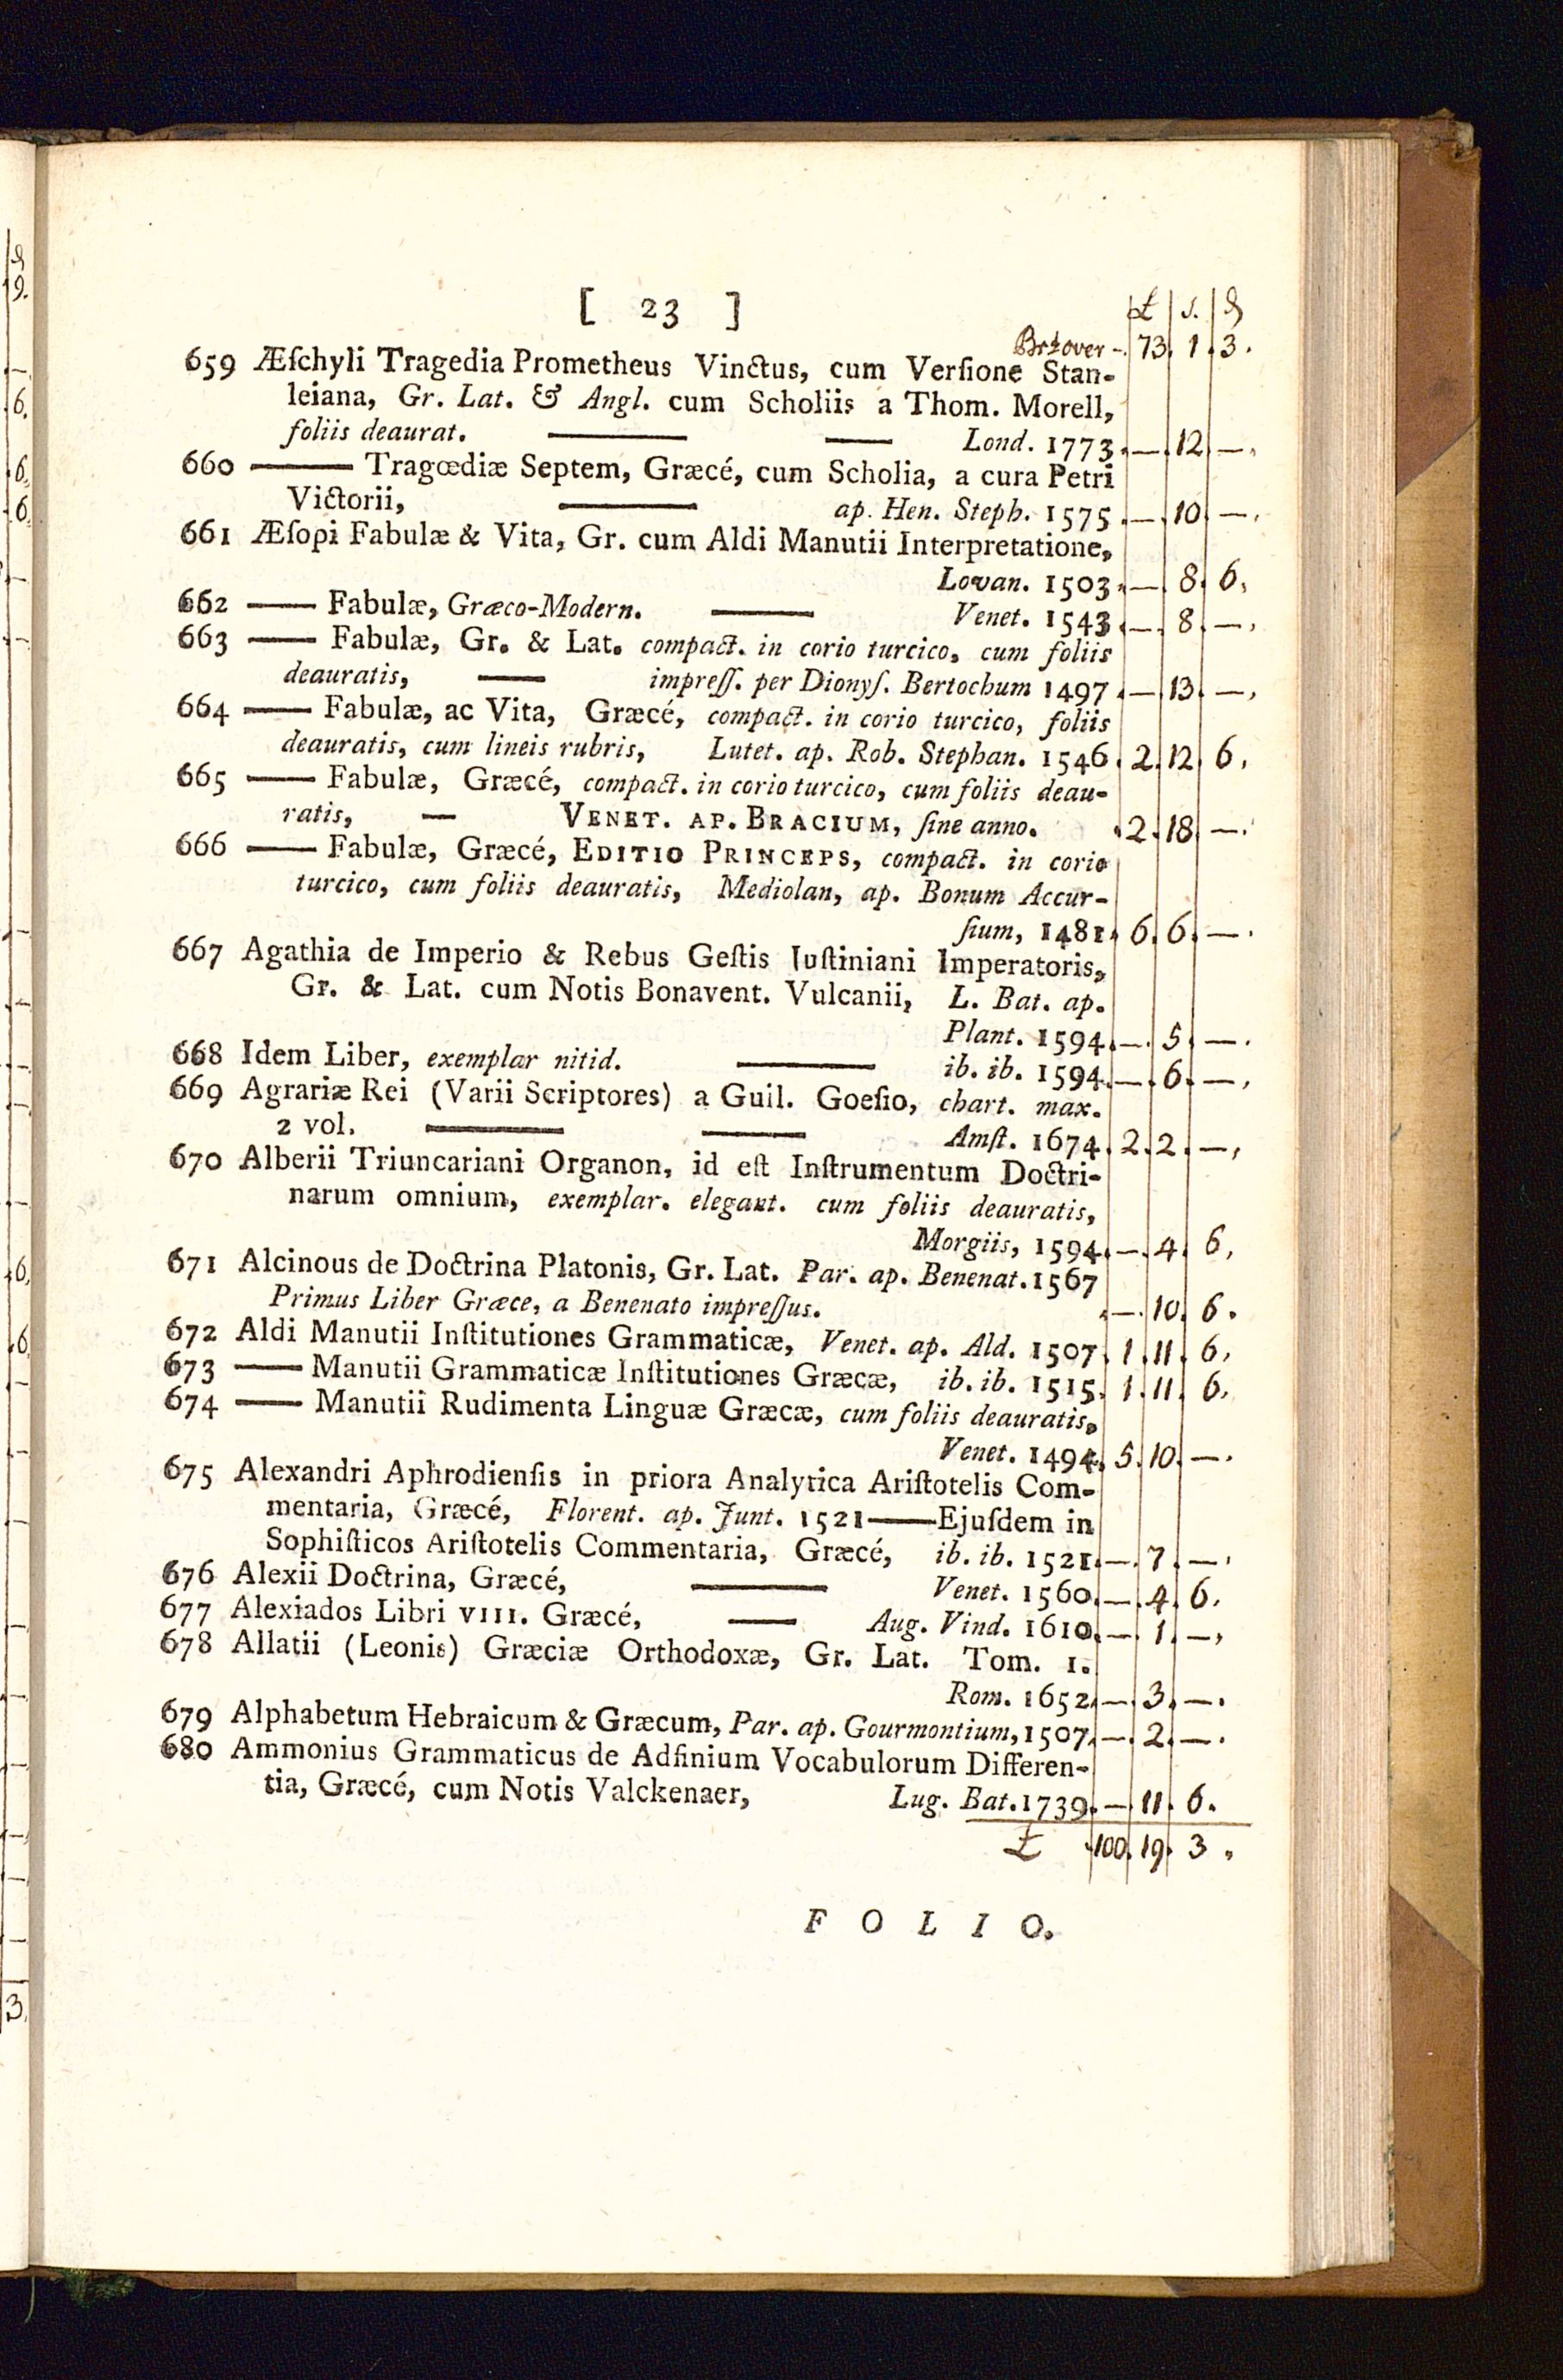 [ 23 ]
£ s. d
Brt over - 73. 1. 3.
659 Æſchyli Tragedia Prometheus Vinctus, cum Verſione Stan-
leiana, Gr. Lat. & Angl. cum Scholiis a Thom. Morell,
foliis deaurat. —— — Lond. 1773. — . 12 . — .
660 —— Tragœdiæ Septem, Græcé, cum Scholia, a cura Petri
Victorii, —— ap. Hen. Steph. 1575 . — . 10 . — .
661 Æſopi Fabulæ & Vita, Gr. cum Aldi Manutii Interpretatione,
Lovan. 1503 . — . 8 . 6 .
662 —— Fabulæ, Græco-Modern. —— Venet. 1543 . — . 8 . — .
663 —— Fabulæ, Gr. & Lat. compact. in corio turcico, cum foliis
deauratis, —— impreſſ. per Dionyſ. Bertochum 1497 . — . 13 . — .
664 —— Fabulæ, ac Vita, Græcé, compact. in corio turcico, foliis
deauratis, cum lineis rubris, Lutet. ap. Rob. Stephan. 1546 . 2 . 12 . 6 .
665 —— Fabulæ, Græcé, compact. in corio turcico, cum foliis deau-
ratis, — VENET. AP. BRACIUM, ſine anno. . 2 . 18 . — .
666 —— Fabulæ, Græcé, EDITIO PRINCEPS, compact. in corio
turcico, cum foliis deauratis, Mediolan, ap. Bonum Accur-
ſium, 1481 . 6 . 6 . — .
667 Agathia de Imperio & Rebus Geſtis Juſtiniani Imperatoris,
Gr. & Lat. cum Notis Bonavent. Vulcanii, L. Bat. ap.
Plant. 1594 . — . 5 . — .
668 Idem Liber, exemplar nitid. —— ib. ib. 1594 . — . 6 . — .
669 Agrariæ Rei (Varii Scriptores) a Guil. Goeſio, chart. max.
2 vol. —— —— Amſt. 1674 . 2 . 2 . — .
670 Alberii Triuncariani Organon, id eſt Inſtrumentum Doctri-
narum omnium, exemplar. elegant. cum foliis deauratis,
Morgiis, 1594 . — . 4 . 6 .
671 Alcinous de Doctrina Platonis, Gr. Lat. Par. ap. Benenat. 1567
Primus Liber Græce, a Benenato impreſſus. . — . 10 . 6 .
672 Aldi Manutii Inſtitutiones Grammaticæ, Venet. ap. Ald. 1507 . 1 . 11 . 6 .
673 —— Manutii Grammaticæ Inſtitutiones Græcæ, ib. ib. 1515 . 1 . 11 . 6 .
674 —— Manutii Rudimenta Linguæ Græcæ, cum foliis deauratis,
Venet. 1494 . 5 . 10 . — .
675 Alexandri Aphrodienſis in priora Analytica Ariſtotelis Com-
mentaria, Græcé, Florent. ap. Junt. 1521 —— Ejuſdem in
Sophiſticos Ariſtotelis Commentaria, Græcé, ib. ib. 1521 . — . 7 . — .
676 Alexii Doctrina, Græcé, —— Venet. 1560 . — . 4 . 6 .
677 Alexiados Libri VIII. Græcé, —— Aug. Vind. 1610 . — . 1 . — .
678 Allatii (Leonis) Græciæ Orthodoxæ, Gr. Lat. Tom. 1.
Rom. 1652 . — . 3 . — .
679 Alphabetum Hebraicum & Græcum, Par. ap. Gourmontium, 1507 . — . 2 . — .
680 Ammonius Grammaticus de Adfinium Vocabulorum Differen-
tia, Græcé, cum Notis Valckenaer, Lug. Bat. 1739 . — . 11 . 6 .
£ 100 . 19 . 3 .
FOLIO.